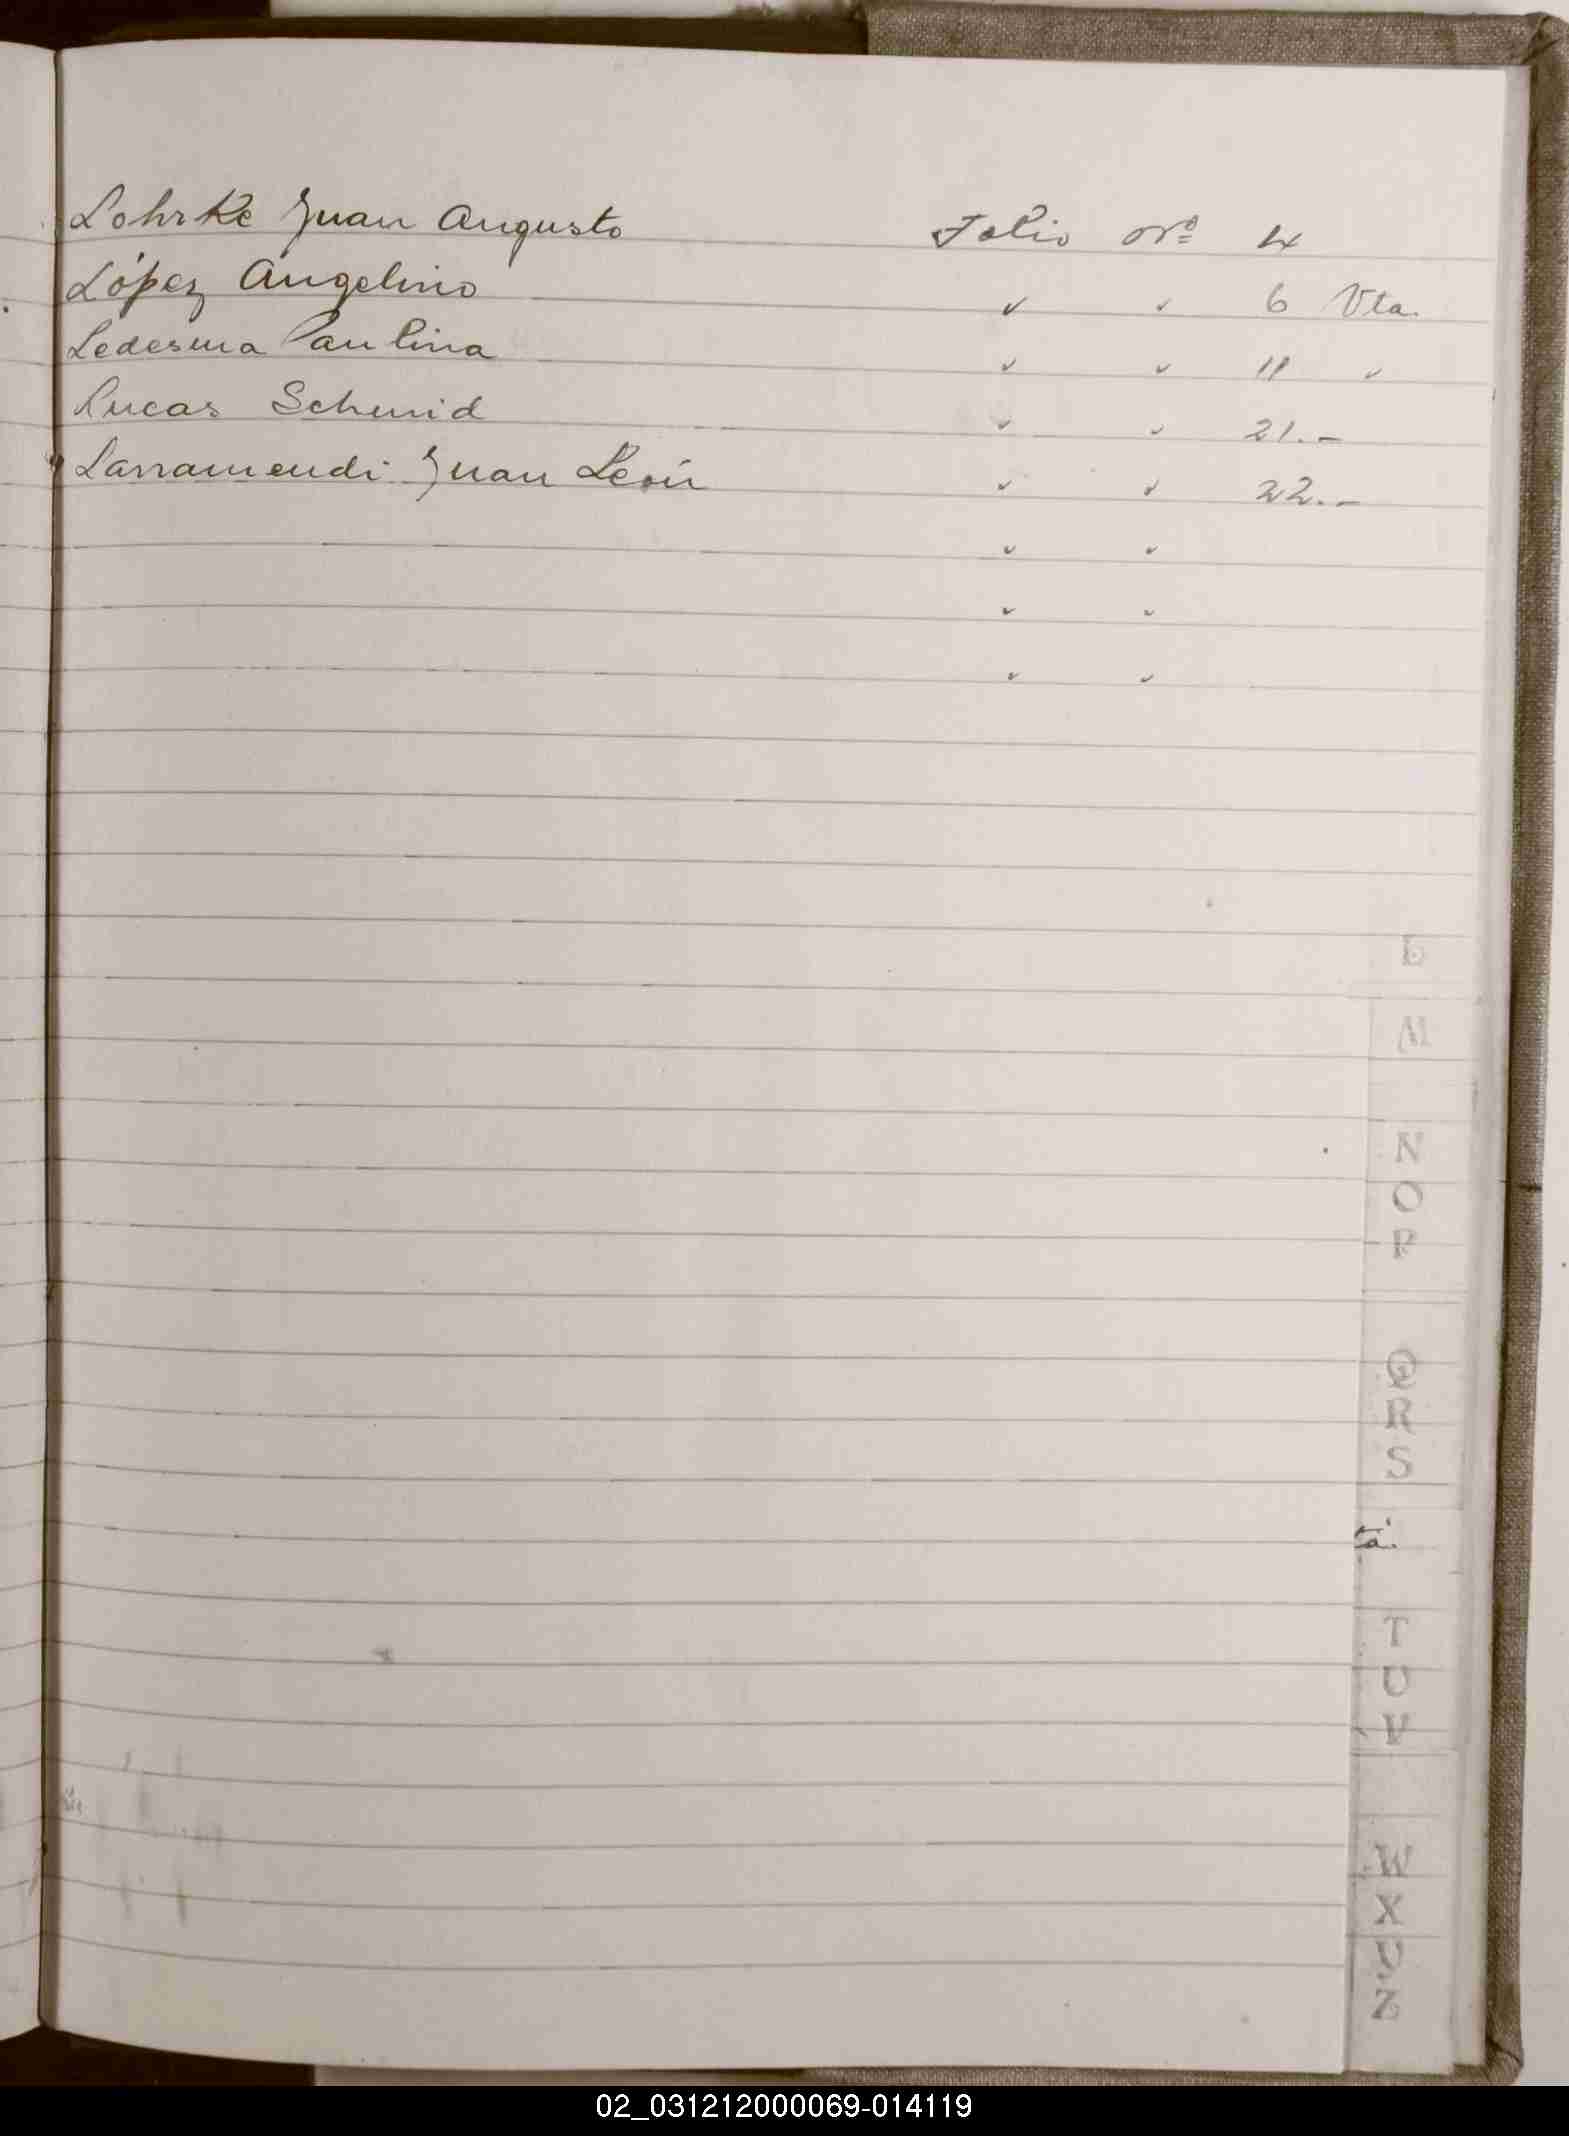 Lohrke Juan Augusto Folio Nº 4
López Angelino " " 6 Vta.
Ledesma Paulina " " 11 "
Lucas Schmid " " 21.-
Larramendi Juan León " " 22.-
" "
" "
" "
L
M
N
O
P
Q
R
S
ta.
T
U
V
W
X
Y
Z
02_031212000069-014119